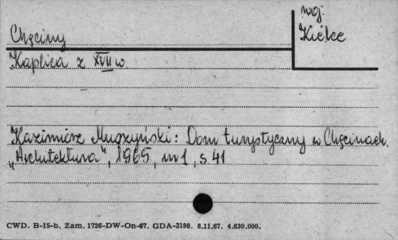 Chęciny
woj.
Kielce
Kaplica z XVII w.
Kazimierz Muszyński: Dom turystyczny w Chęcinach.
„Architektura", 1965, nr 1, s 41
CWD. B-15-b. Zam. 1726-DW-On-67. GDA-3198. 8.11.67. 4.630.000.